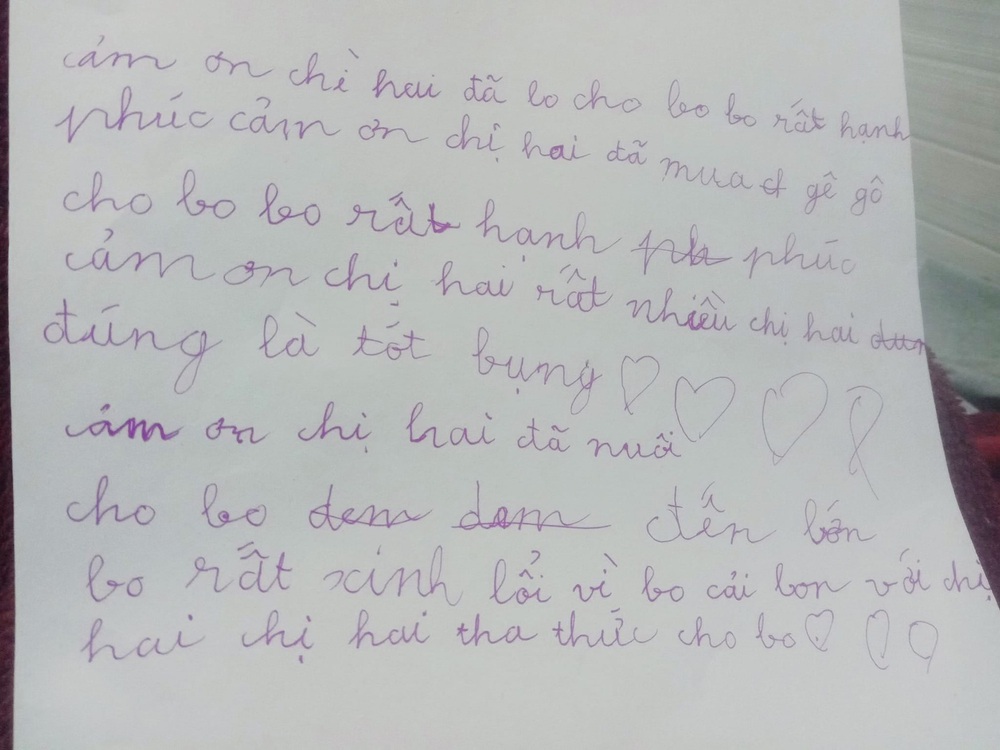 cảm ơn chì hai đã lo cho bo bo rất hạnh
phúc cảm ơn chị hai đã mua gê gô
cho bo bo rất hạnh phúc
cảm ơn chị hai rất nhiều chị hai
đúng là tốt bụng
cảm ơn chị hai đã nuôi
cho bo đến lớn
bo rất xinh lổi vì bo cải lon với chị
hai chị hai tha thức cho bo